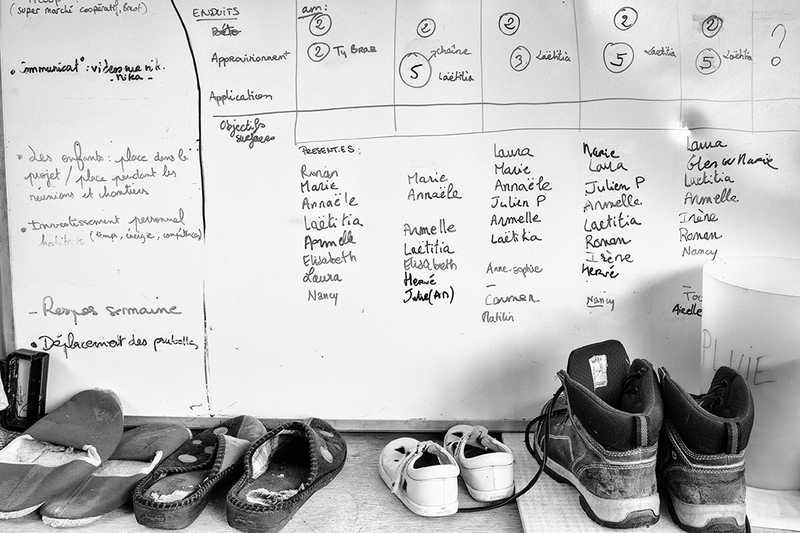 (super marché coopératif, Brest)
- Les enfants : place dans le
projet / place pendant les
réunions et chantiers
- Investissement personnel
(temps, énergie, compétences)
- Respos semaine
Déplacement des poubelles
ENDUITS
Approvisionnemt
Application
Objectifs
surfaces
am:
2
2 Ty Braz
2
chaîne
5
Laëtitia
2
3 Laëtitia
2
5 Laëtitia
2
5 Laëtitia
?
PRESENT.ES :
Ronan
Marie
Annaële
Laëtitia
Armelle
Elisabeth
Laura
Nancy
Marie
Annaële
Armelle
Laëtitia
Elisabeth
Hervé
Julie (AM)
Laura
Marie
Annaële
Julien P
Armelle
Laëtitia
Anne-Sophie
Carmen
Marie
Laura
Julien P
Armelle
Laëtitia
Ronan
Irène
Hervé
Nancy
Laura
Glen ou Marie
Laëtitia
Armelle
Irène
Ronan
Nancy
PLUIE